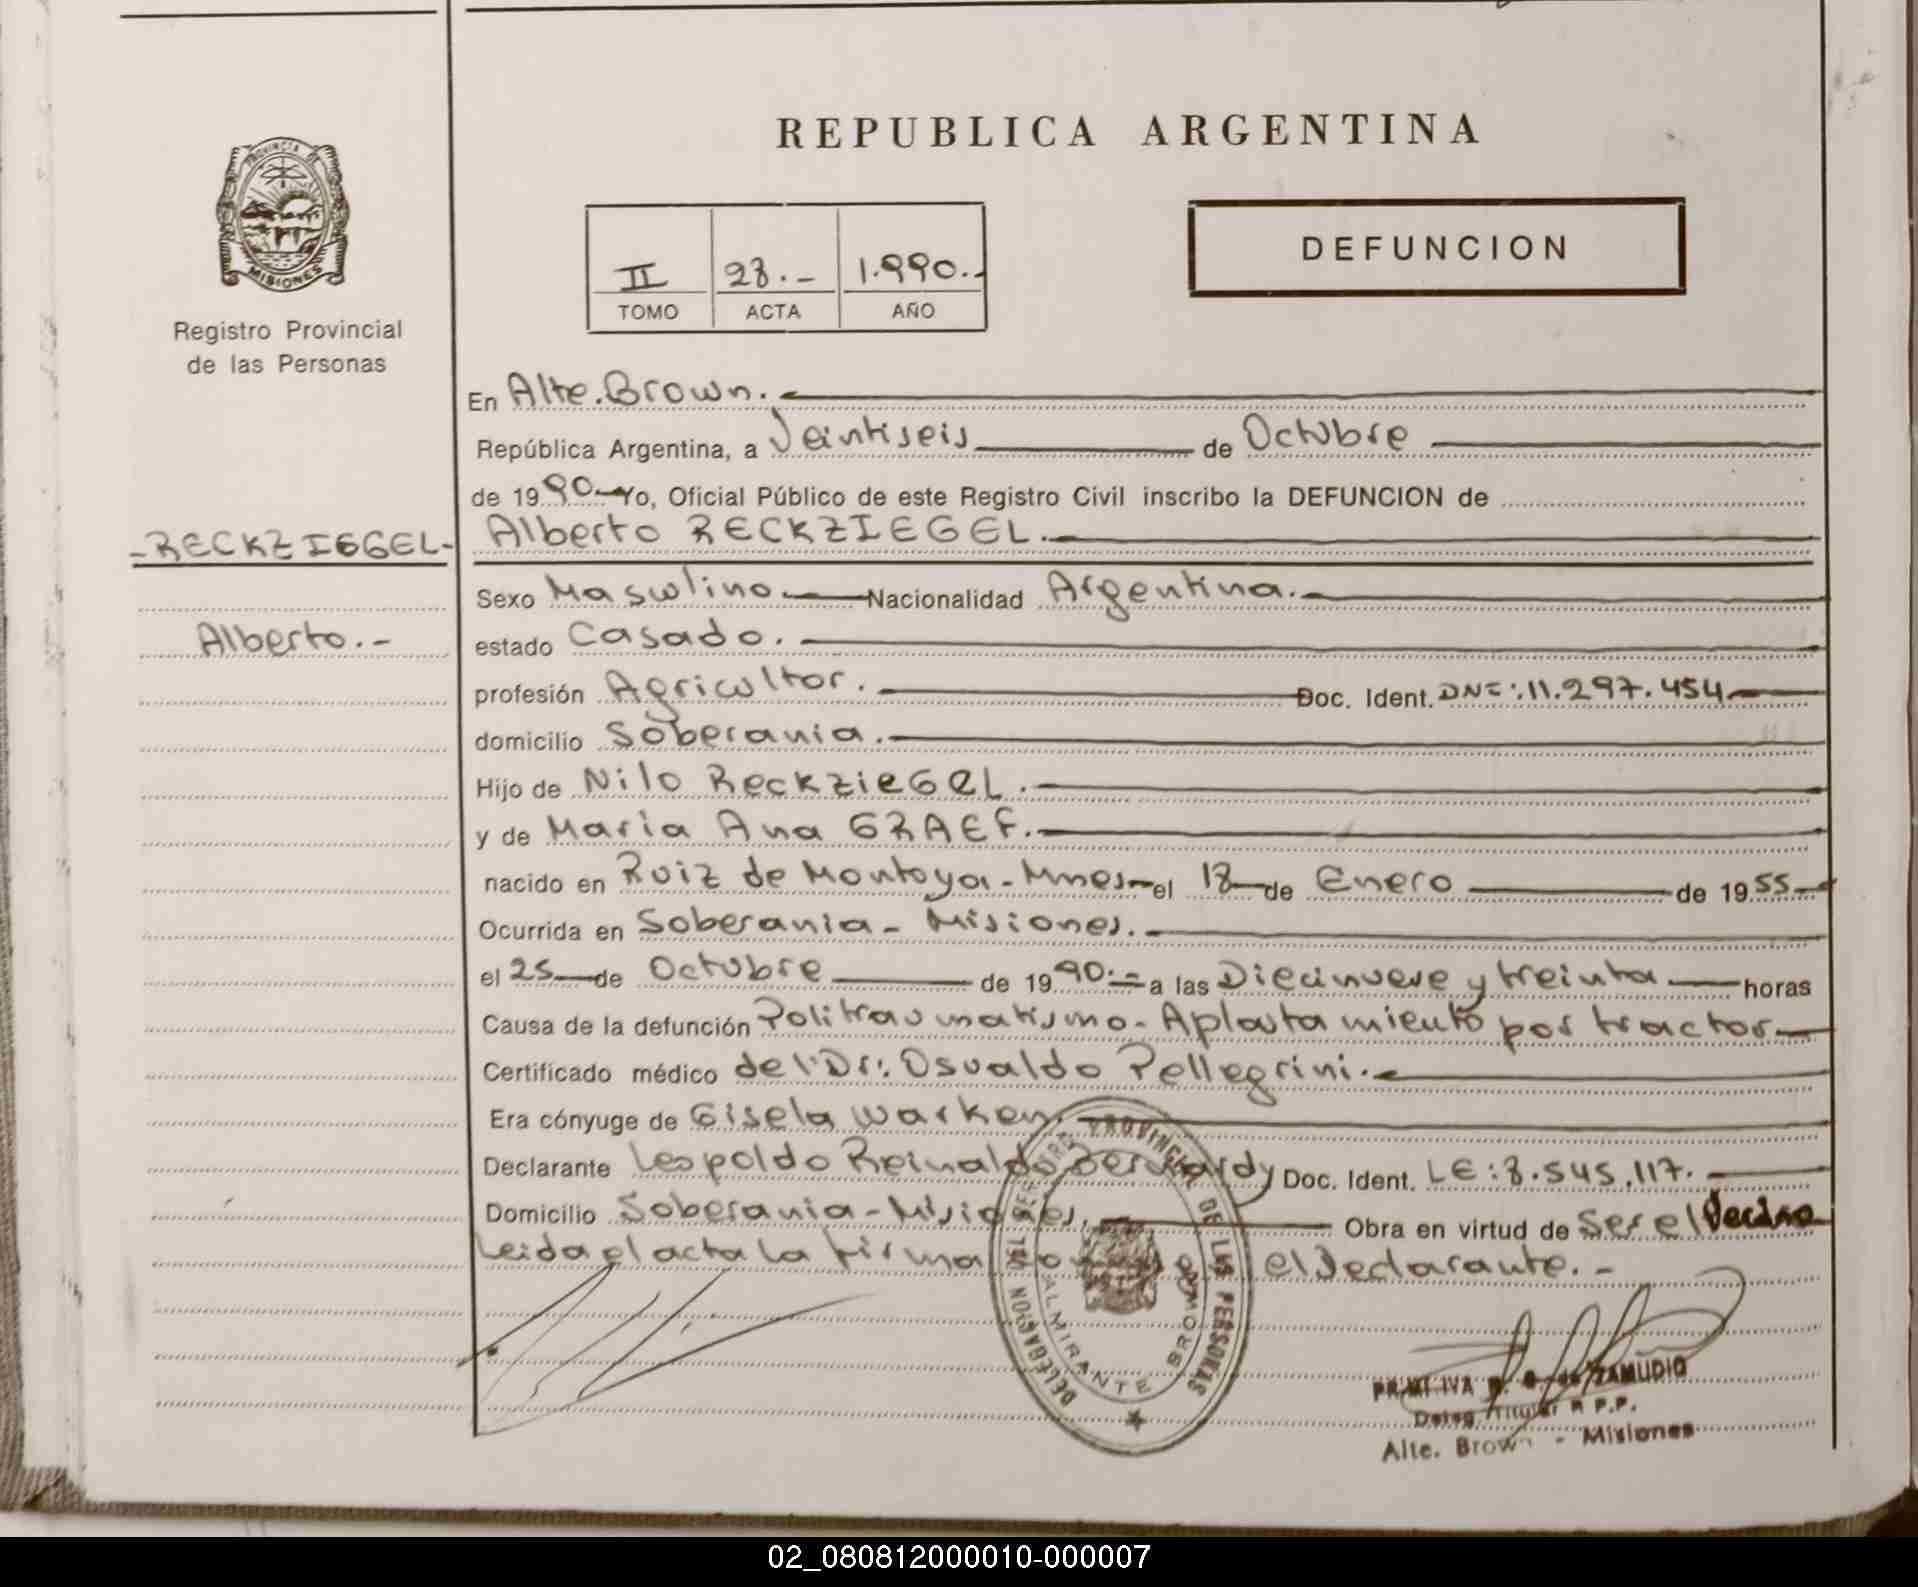 REPUBLICA ARGENTINA
PROVINCIA DE
MISIONES
Registro Provincial
de las Personas
DEFUNCION
II 28.- 1.990.-
TOMO ACTA AÑO
En Alte. Brown.
República Argentina, a Veintiseis de Octubre
de 1990.- Yo, Oficial Público de este Registro Civil inscribo la DEFUNCION de
-RECKZIEGEL- Alberto RECKZIEGEL.
Sexo Masculino. Nacionalidad Argentina.
Alberto.- estado Casado.
profesión Agricultor. Doc. Ident. DNI: 11.297.454
domicilio Soberania.
Hijo de Nilo ReckzieGeL.
y de Maria Ana GRAEF.
nacido en Ruiz de Montoya - Mnes el 18 de Enero de 1955
Ocurrida en Soberania - Misiones.
el 25 de Octubre de 1990.- a las Diecinueve y treinta horas
Causa de la defunción Politraumatismo - Aplastamiento por tractor
Certificado médico del Dr: Osvaldo Pellegrini.
Era cónyuge de Gisela Warken.
Declarante Leopoldo Reinaldo Bernardy Doc. Ident. LE: 8.545.117.
Domicilio Soberania - Misiones. Obra en virtud de Ser el Vecino
Leida el acta la firma el Declarante.-
DELEGACION DEL REGISTRO PROVINCIAL DE LAS PERSONAS
ALMIRANTE BROWN
ZAMUDIO
Deleg. Titular R.P.P.
Alte. Brown - Misiones
02_080812000010-000007